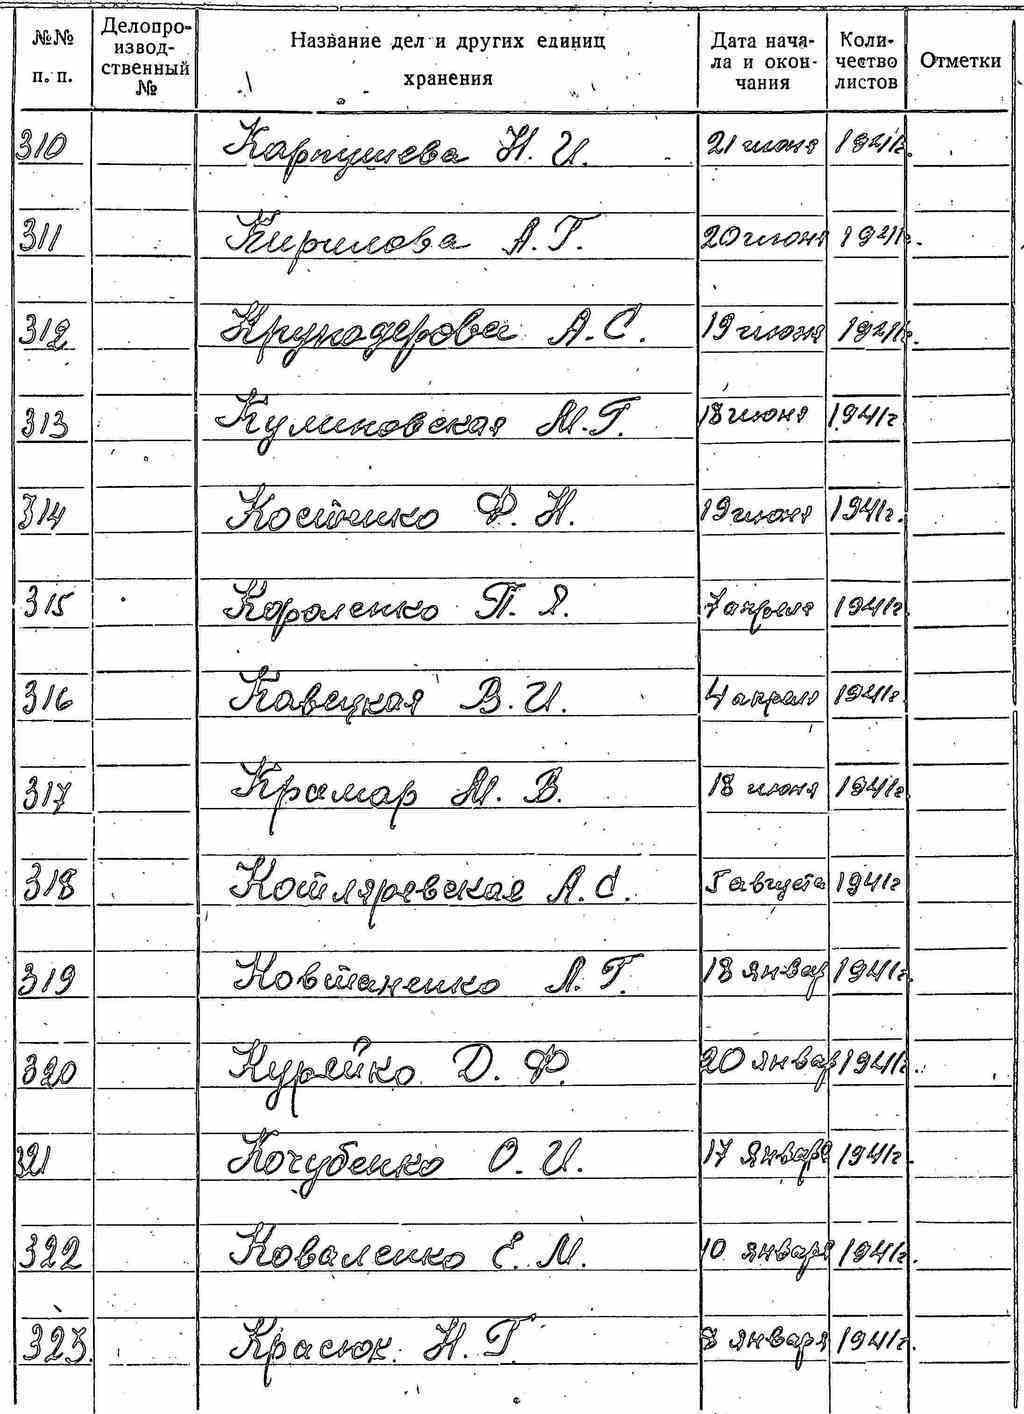 №№ п. п. Делопро-извод-ственный № Название дел и других единиц хранения Дата нача-ла и окон-чания Коли-чество листов Отметки
310 Карпушева Н. И. 21 июня 1941г.
311 Кирилова А. Г. 20 июня 1941г.
312 А. С. 19 июня 1941г.
313 Куликовская М. Г. 18 июня 1941г
314 Костенко Ф. Н. 19 июня 1941г.
315 Короленко П. Я. 7 апреля 1941г
316 Кавецкая В. И. 4 апреля 1941г
317 Крамар М. В. 18 июня 1941г
318 Котляревская А. С. августа 1941г
319 Л. Г. 18 январ 1941г.
320 Курейко Д. Ф. 20 январ 1941г.
321 Кочубенко О. И. 17 января 1941г.
322 Коваленко Е. М. 10 января 1941г.
323. Красюк Н. Г. 8 января 1941г.